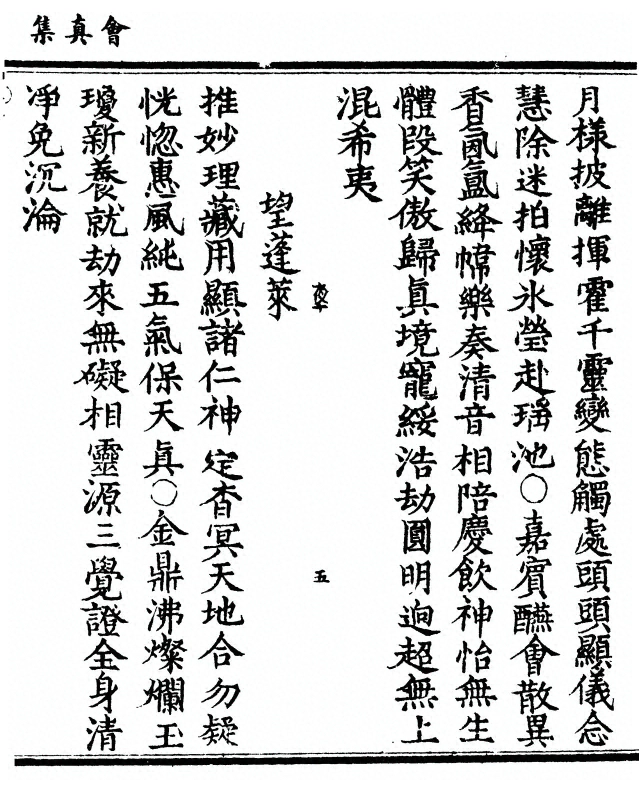 會真集
月樣披離揮霍千靈變態觸處頭頭顯儀念
慧除迷拍懷氷瑩赴瑤池〇嘉賓醼會散異
香氤氳絳幃樂奏清音相陪慶飲神怡無生
體段笑傲歸真境寵綏浩劫圓明逈超無上
混希夷
五
望蓬萊
推妙理藏用顯諸仁神定杳冥天地合勿疑
恍惚惠風純五氣保天真〇金鼎沸燦爛玉
瓊新養就劫來無礙相靈源三覺證全身清
凈免沉淪